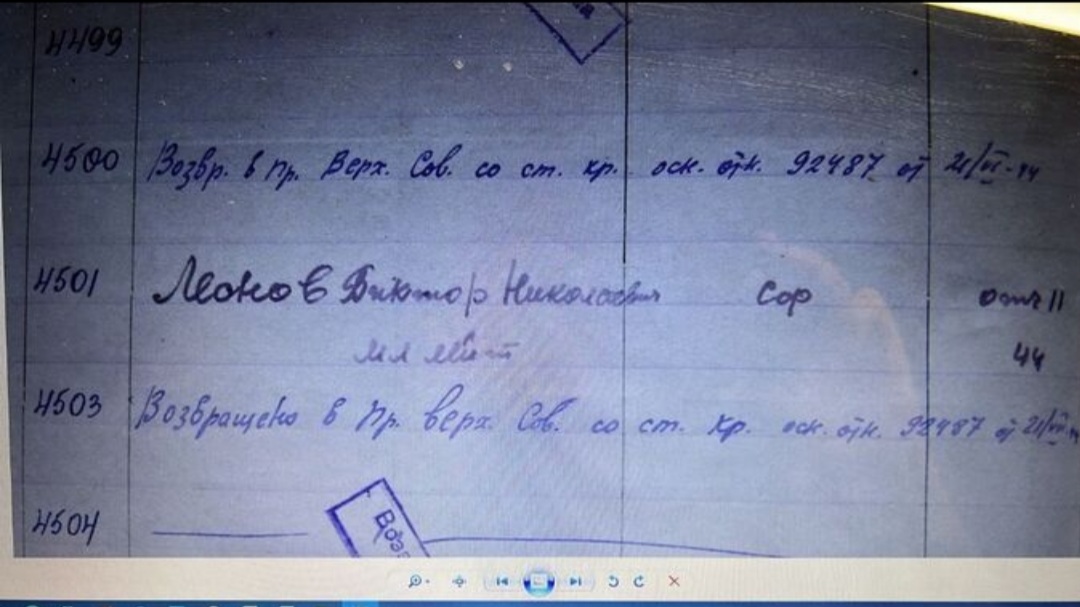 4499
4500 Возвр. в Пр. Верх. Сов. со ст. Кр. осн. отн. 92487 от 21/VI-44
4501 Леонов Виктор Николаевич Сор отч 11
мл лейт 44
4503 Возвращено в Пр. Верх. Сов. со ст. Кр. осн. отн. 92487 от 21/VI-44
4504